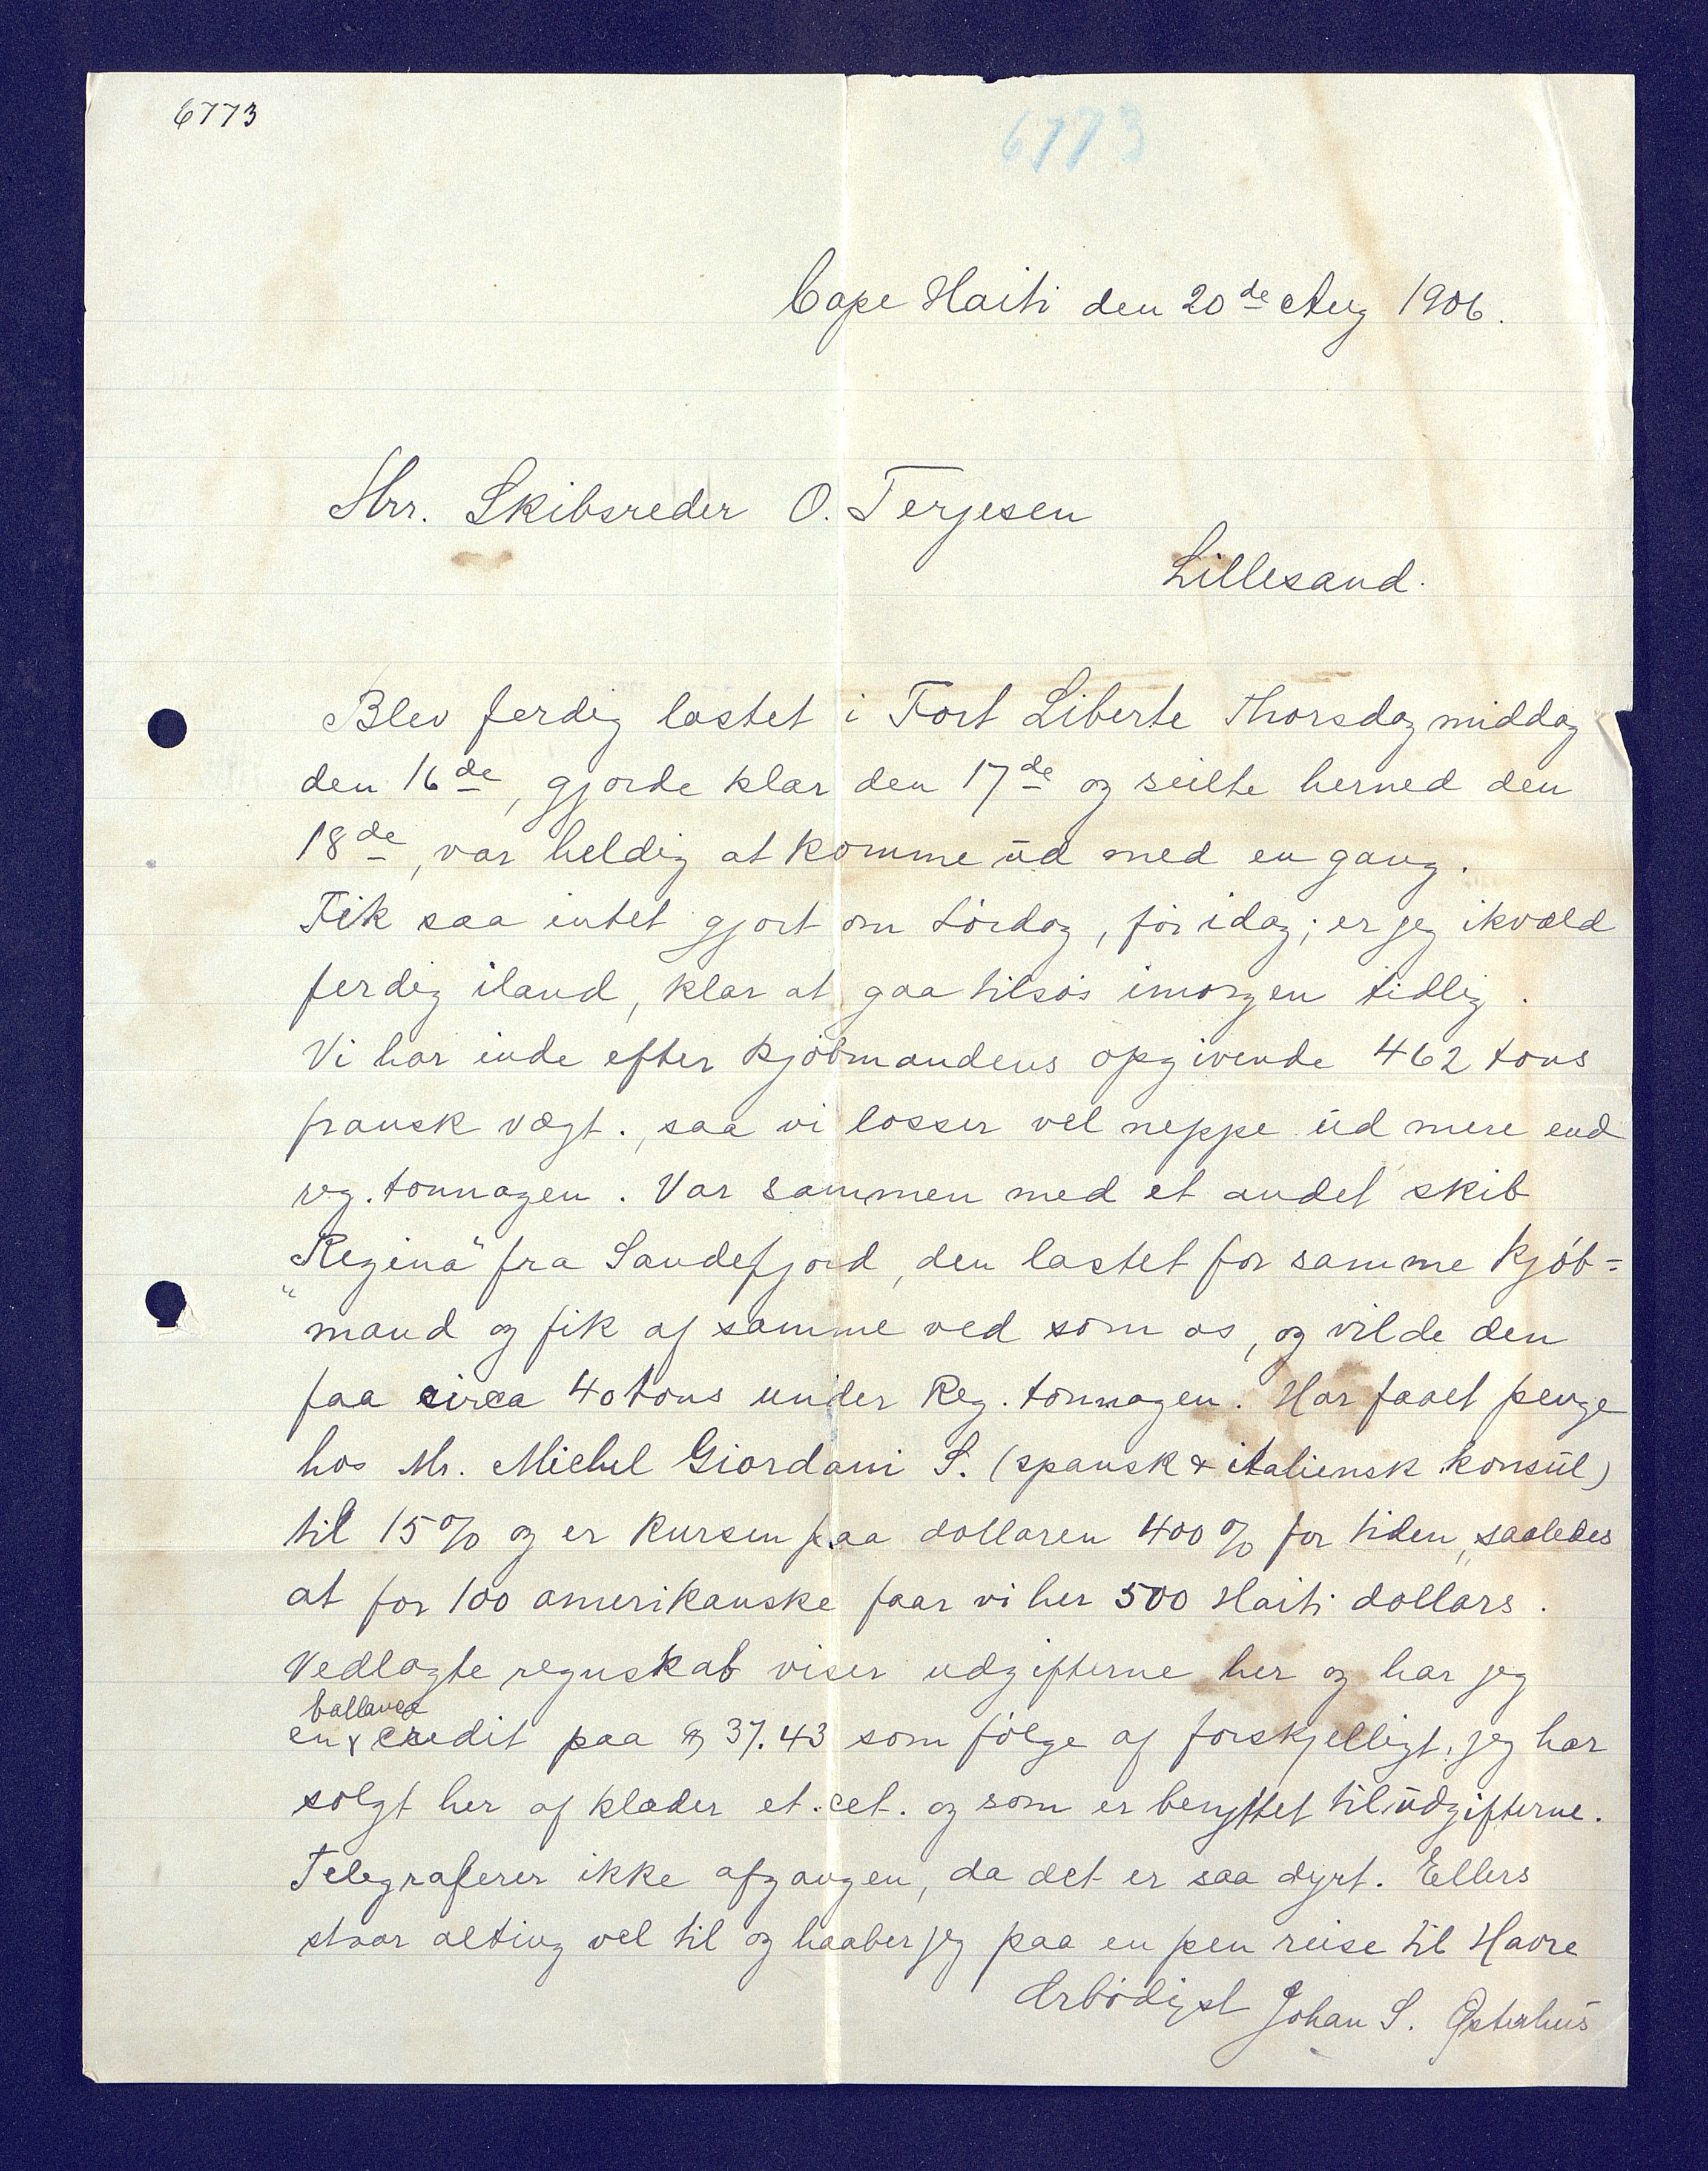 6773
6773
Cape Haiti den 20de Aug 1906.
Hrr. Skibsreder O. Terjesen
Lillesand.
Blev ferdig lastet i Fort Liberte Thorsdag middag
den 16de, gjorde klar den 17de og seilte herned den
18de, var heldig at komme ud med en gang.
Fik saa intet gjort om Lördag, för idag; er jeg ikvæld
ferdig iland, klar at gaa tilsös imorgen tidlig.
Vi har inde efter kjöbmandens opgivende 462 tons
fransk vægt., saa vi losser vel neppe ud mere end
reg. tonnagen. Var sammen med et andet skib
„Regina“ fra Sandefjord, den lastet for samme kjöb=
mand og fik af samme ved som os, og vilde den
faa circa 40 tons under Reg. tonnagen. Har faaet penge
hos Mr. Michel Giordani S. (spansk & italiensk konsul)
til 15% og er kursen paa dollaren 400% for tiden, saaledes
at for 100 amerikanske faar vi her 500 Haiti dollars.
Vedlagte regnskab viser udgifterne her og har jeg
ballance
en credit paa $ 37.43 som fölge af forskjelligt, jeg har
solgt her af klæder et. cet. og som er benyttet til udgifterne.
Telegraferer ikke afgangen, da det er saa dyrt. Ellers
staar alting vel til og haaber jeg paa en pen reise til Havre
Ærbödigst Johan S. Østerhus